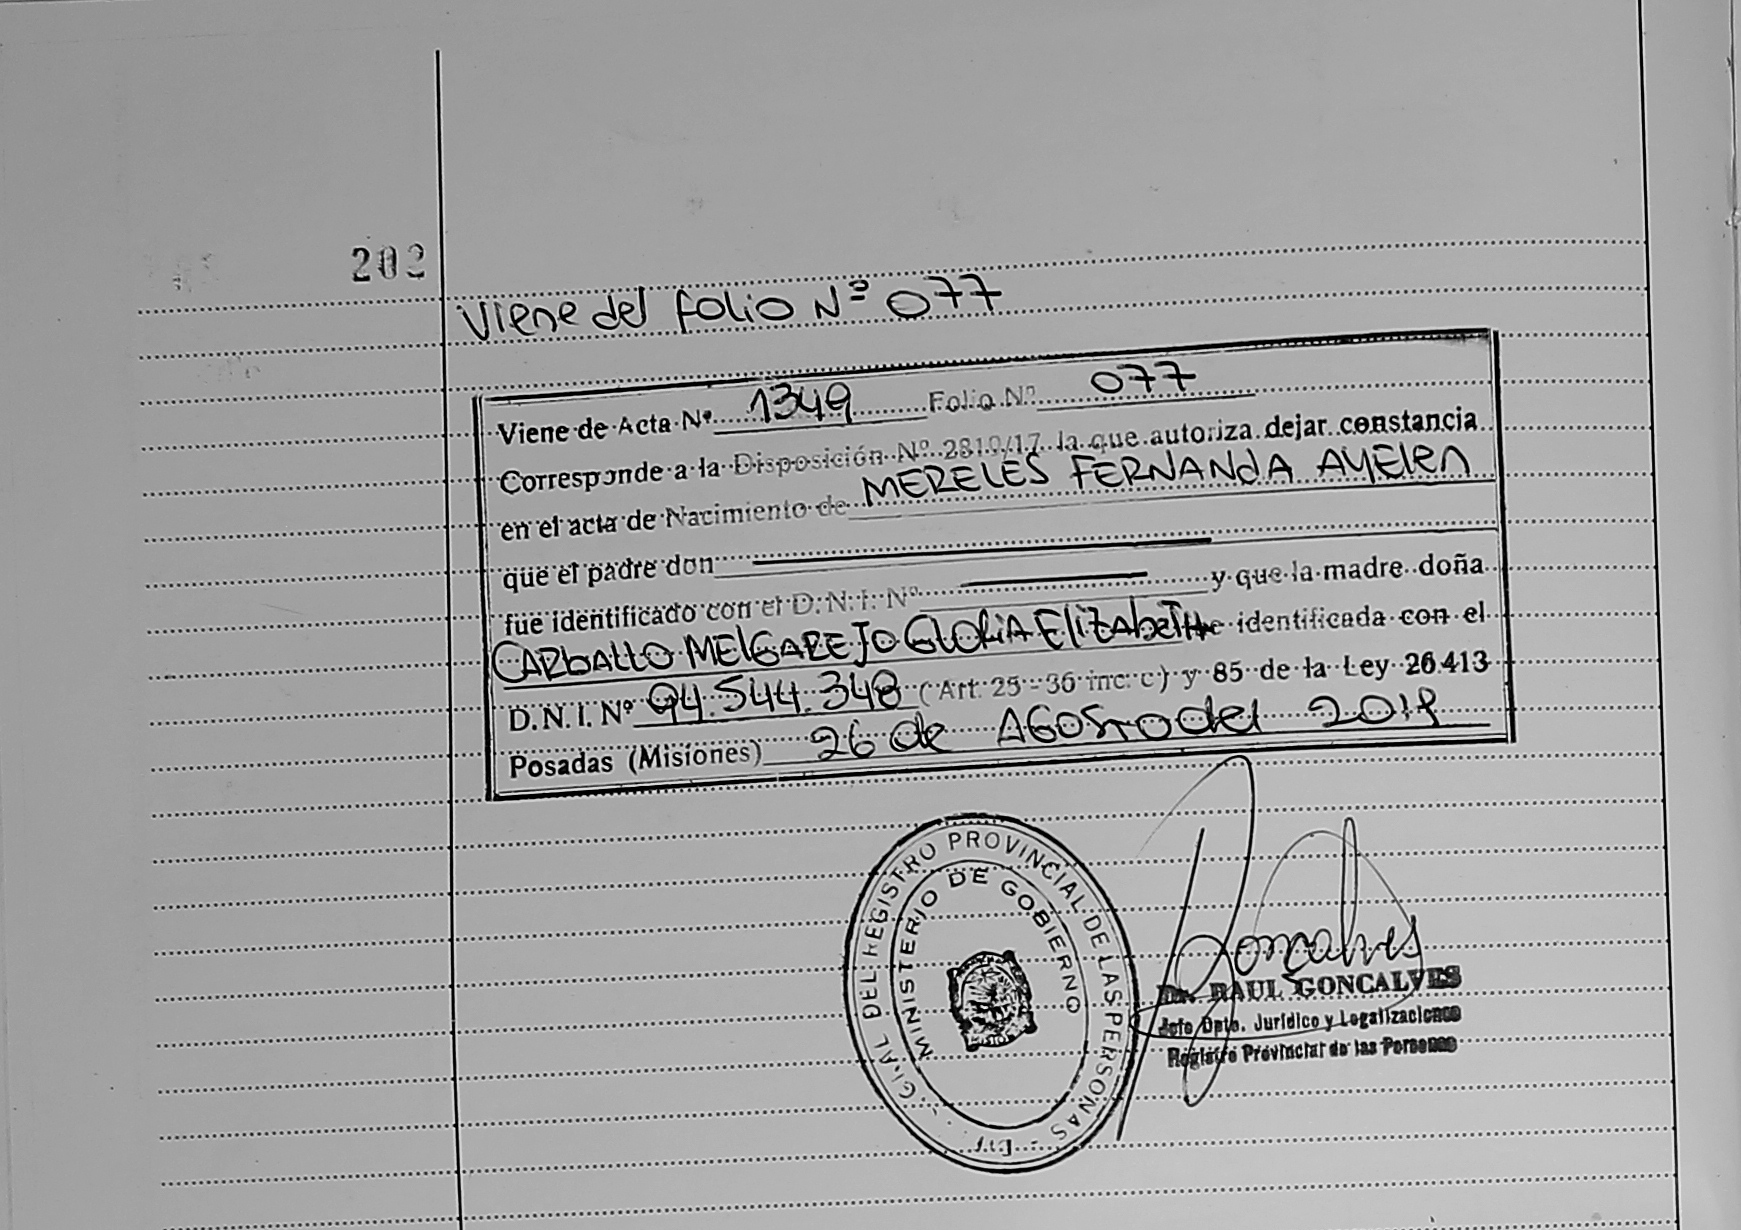 202
Viene del folio Nº 077
Viene de Acta Nº 1349 Folio Nº 077
Corresponde a la Disposición Nº 2810/17 la que autoriza dejar constancia
en el acta de Nacimiento de MERELES FERNANdA AYElen
que el padre don
fue identificado con el D. N. I. Nº y que la madre doña
CARbALLO MElGAREJO GLORiA ElizAbeTH e identificada con el
D. N. I. Nº 94.544.348 (Art. 25 - 36 inc. c) y 85 de la Ley 26.413
Posadas (Misiones) 26 de AGOSTO del
DEL REGISTRO PROVINCIAL DE LAS PERSONAS
MINISTERIO DE GOBIERNO
Goncalves
Dr. RAUL GONCALVES
Jefe Dpto. Jurídico y Legalizaciones
Registro Provincial de las Personas